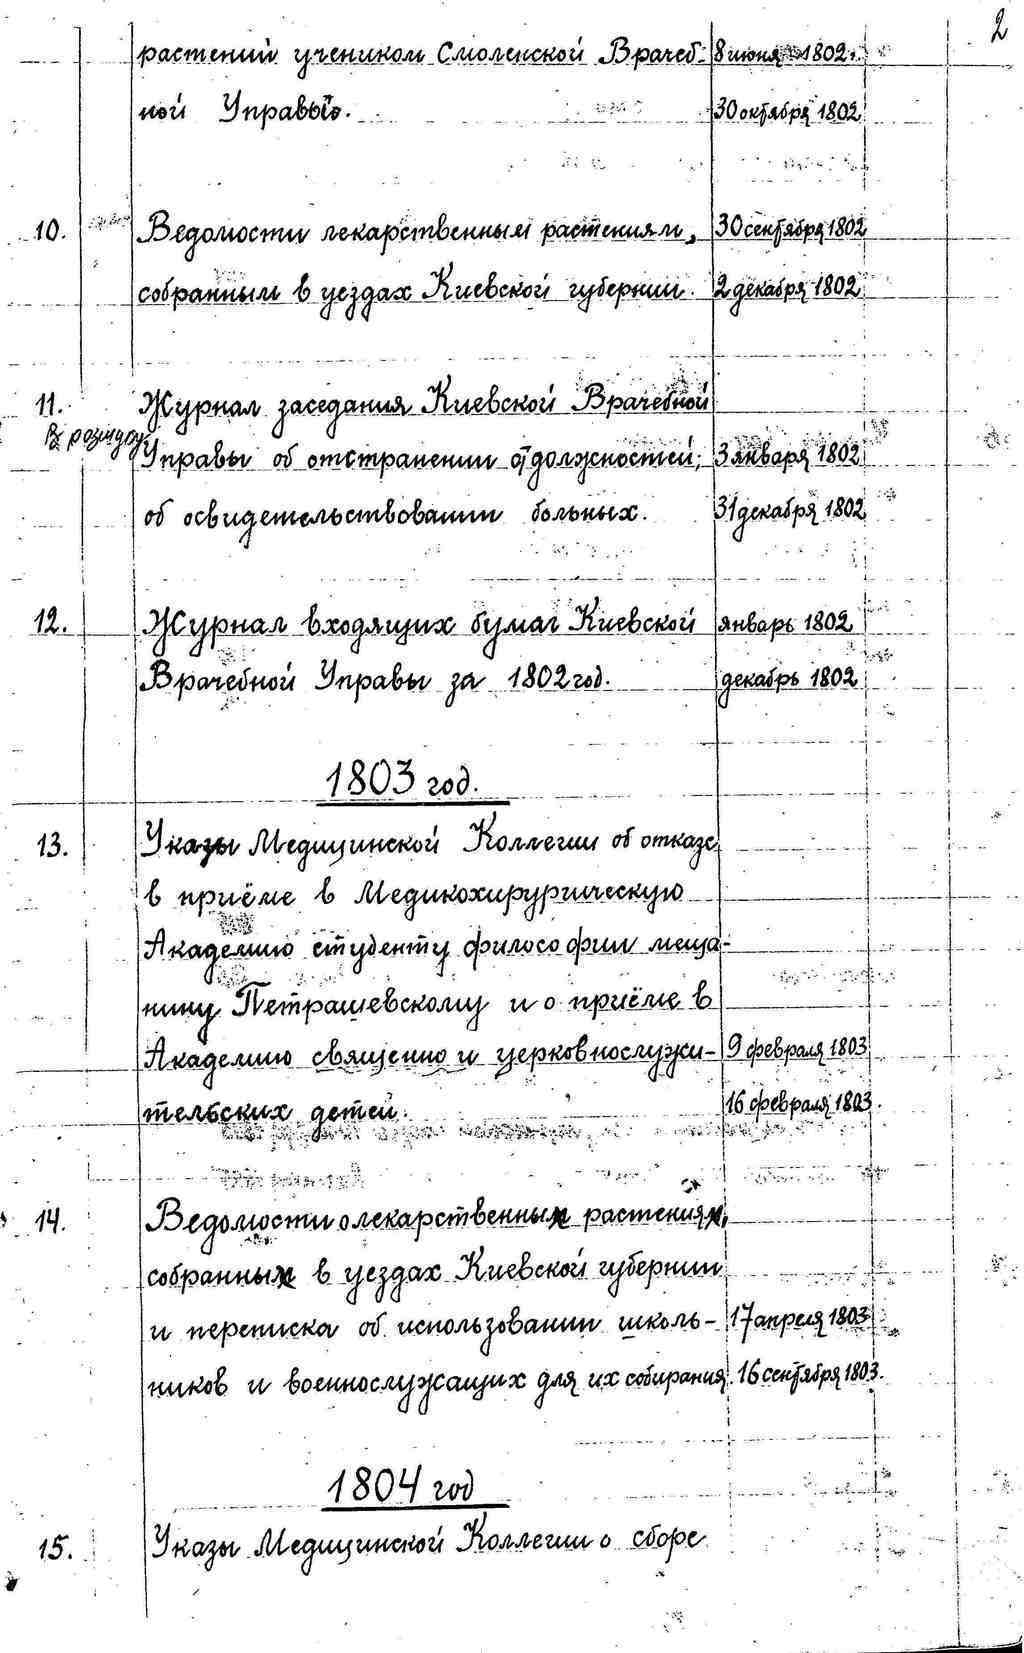 2
растений учеником Смоленской Врачеб- 8 июня 1802г.
ной Управы. 30 октября 1802
10. Ведомости лекарственным растениям, 30 сентября 1802
собранным в уездах Киевской губернии. 2 декабря 1802
11. Журнал заседания Киевской Врачебной
Управы об отстранении от должностей; 3 января 1802
об освидетельствовании больных. 31 декабря 1802
12. Журнал входящих бумаг Киевской январь 1802
Врачебной Управы за 1802 год. декабрь 1802
1803 год.
13. Указы Медицинской Коллегии об отказе
в приёме в Медикохирургическую
Академию студенту философии меща-
нину Петрашевскому и о приёме в
Академию священно и церковнослужи- 9 февраля 1803
тельских детей. 16 февраля 1803.
14. Ведомости о лекарственных растениях,
собранных в уездах Киевской губернии
и переписка об использовании школь- 17 апреля 1803
ников и военнослужащих для их собирания. 16 сентября 1803.
1804 год
15. Указы Медицинской Коллегии о сборе